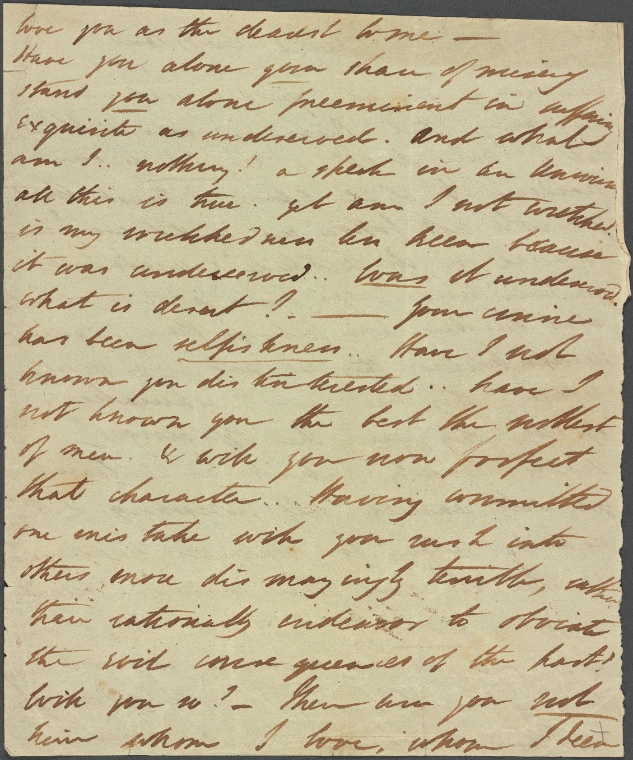 love you as the dearest to me —
Have you alone your share of misery
stand you alone preeminent in suffering
exquisite as undeserved. And what
am I.. nothing! a speck in an Universe
all this is true. yet am I not wretched.
is my wretchedness less keen because
it was undeserved.. Was it undeserved.
what is desert?. — Your crime
has been selfishness.. Have I not
known you disinterested.. have I
not known you the best the noblest
of men. & will you now forfeit
that character.. Having committed
one mistake will you rush into
others more dismayingly terrible, rather
than rationally endeavor to obviate
the evil consequences of the past?
Will you so? — Then are you not
him whom I love, whom I deem